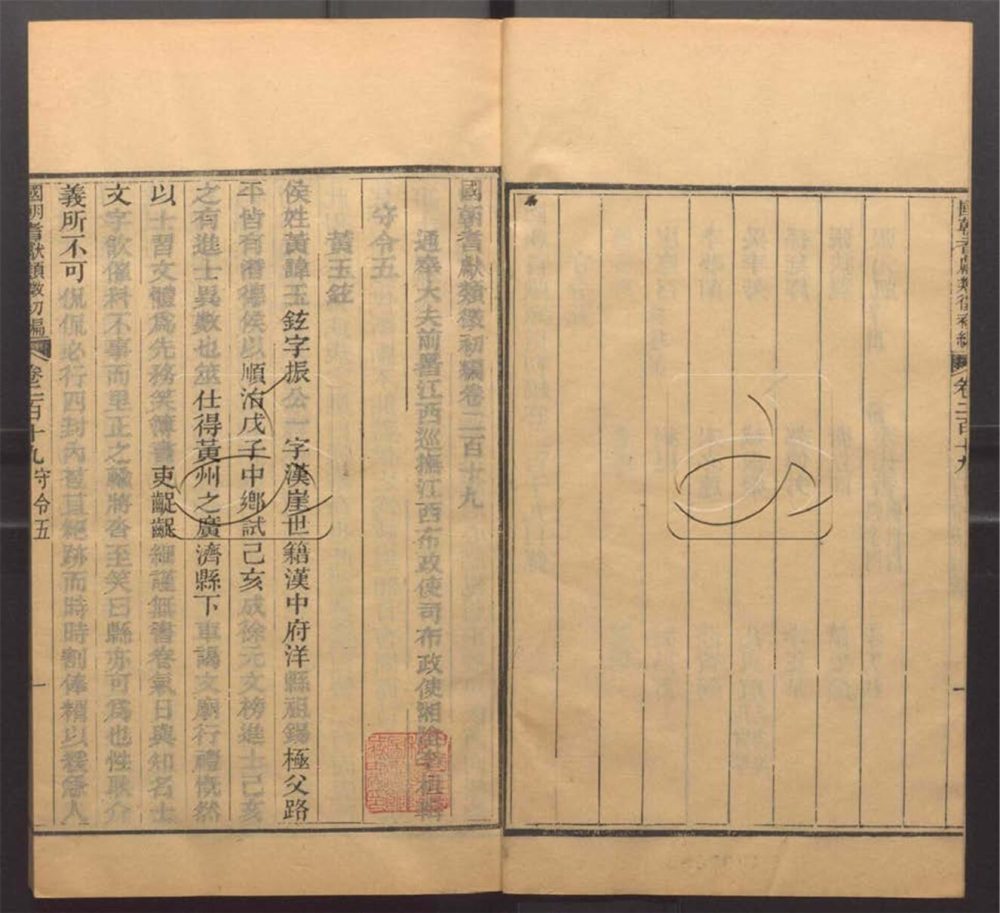 卷二百十九
一
國朝耆獻類徵初編卷二百十九
通奉大夫前署江西巡撫江西布政使司布政使湘陰李桓輯
守令五
黃玉鉉
侯姓黃諱玉鉉字振公一字漢崖世籍漢中府洋縣祖錫極父路
平皆有潛德侯以順治戊子中鄉試己亥成徐元文榜進士己亥
之有進士異數也筮仕得黃州之廣濟縣下車謁文廟行禮慨然
以士習文體為先務笑簿書吏齷齪細謹無書卷氣日與知名士
文字飲催科不事而里正之輸將沓至笑曰縣亦可為也性耿介
義所不可侃侃必行四封內苞苴絕跡而時時割俸糈以襚人
國朝耆獻類徵初編 卷二百十九守令五
一